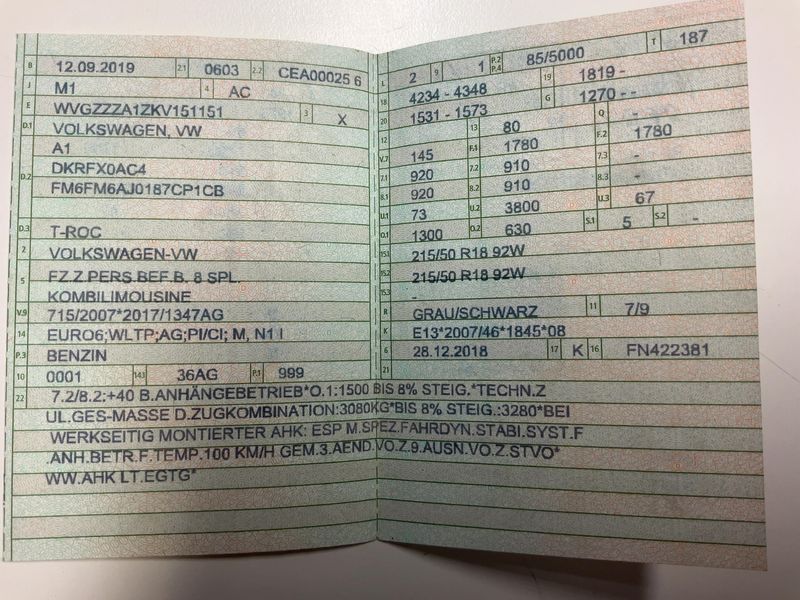 B 12.09.2019 2.1 0603 2.2 CEA00025 6
J M1 4 AC
E WVGZZZA1ZKV151151 3 X
D.1 VOLKSWAGEN, VW
A1
D.2 DKRFX0AC4
FM6FM6AJ0187CP1CB
D.3 T-ROC
2 VOLKSWAGEN-VW
5 FZ.Z.PERS.BEF.B. 8 SPL.
KOMBILIMOUSINE
V.9 715/2007*2017/1347AG
14 EURO6;WLTP;AG;PI/CI; M, N1 I
P.3 BENZIN
10 0001 14.1 36AG P.1 999
L 2 9 1 P.2 P.4 85/5000 T 187
18 4234 - 4348 19 1819 -
20 1531 - 1573 G 1270 - -
12 - 13 80 Q -
V.7 145 F.1 1780 F.2 1780
7.1 920 7.2 910 7.3 -
8.1 920 8.2 910 8.3 -
U.1 73 U.2 3800 U.3 67
O.1 1300 O.2 630 S.1 5 S.2 -
15.1 215/50 R18 92W
15.2 215/50 R18 92W
15.3 -
R GRAU/SCHWARZ 11 7/9
K E13*2007/46*1845*08
6 28.12.2018 17 K 16 FN422381
21
22 7.2/8.2:+40 B.ANHÄNGEBETRIEB*O.1:1500 BIS 8% STEIG.*TECHN.Z
UL.GES-MASSE D.ZUGKOMBINATION:3080KG*BIS 8% STEIG.:3280*BEI
WERKSEITIG MONTIERTER AHK: ESP M.SPEZ.FAHRDYN.STABI.SYST.F
.ANH.BETR.F.TEMP.100 KM/H GEM.3.AEND.VO.Z.9.AUSN.VO.Z.STVO*
WW.AHK LT.EGTG*